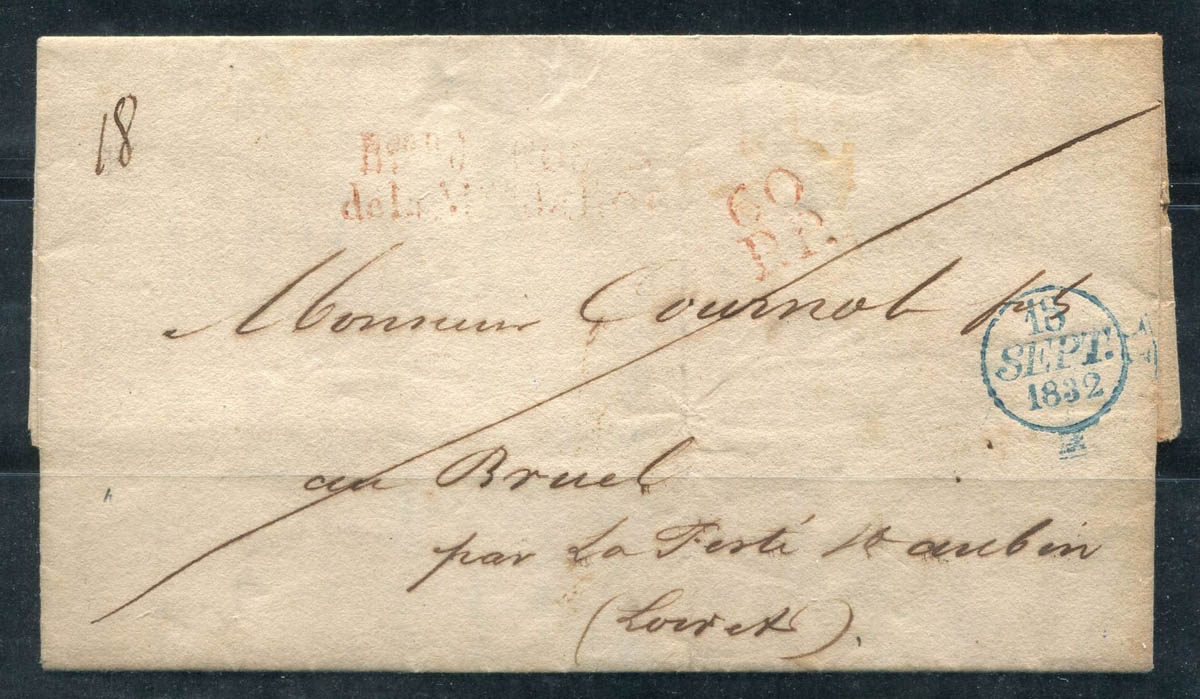 18
de la
60
P.P.
Monsieur Cournol
18
SEPT.
1832
au Bruel
par La Ferté St aubin
(Loiret).